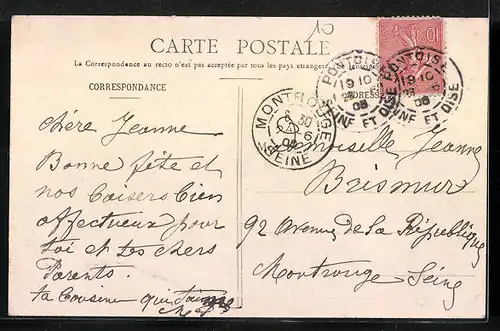 10
CARTE POSTALE
La Correspondance au recto n'est pas acceptée par tous les pays étrangers
CORRESPONDANCE
PONTOISE
19 10
23 6
06
SEINE ET OISE
PONTOISE
19 10
23 6
06
SEINE ET OISE
10
MONTROUGE
6 30
6
SEINE
chère Jeanne
Bonne fête et
nos baisers bien
affectueux pour
toi et tes chers
Parents.
ta Cousine qui t'aime
Mademoiselle Jeanne
Brismur
92 Avenue de la République
Montrouge Seine